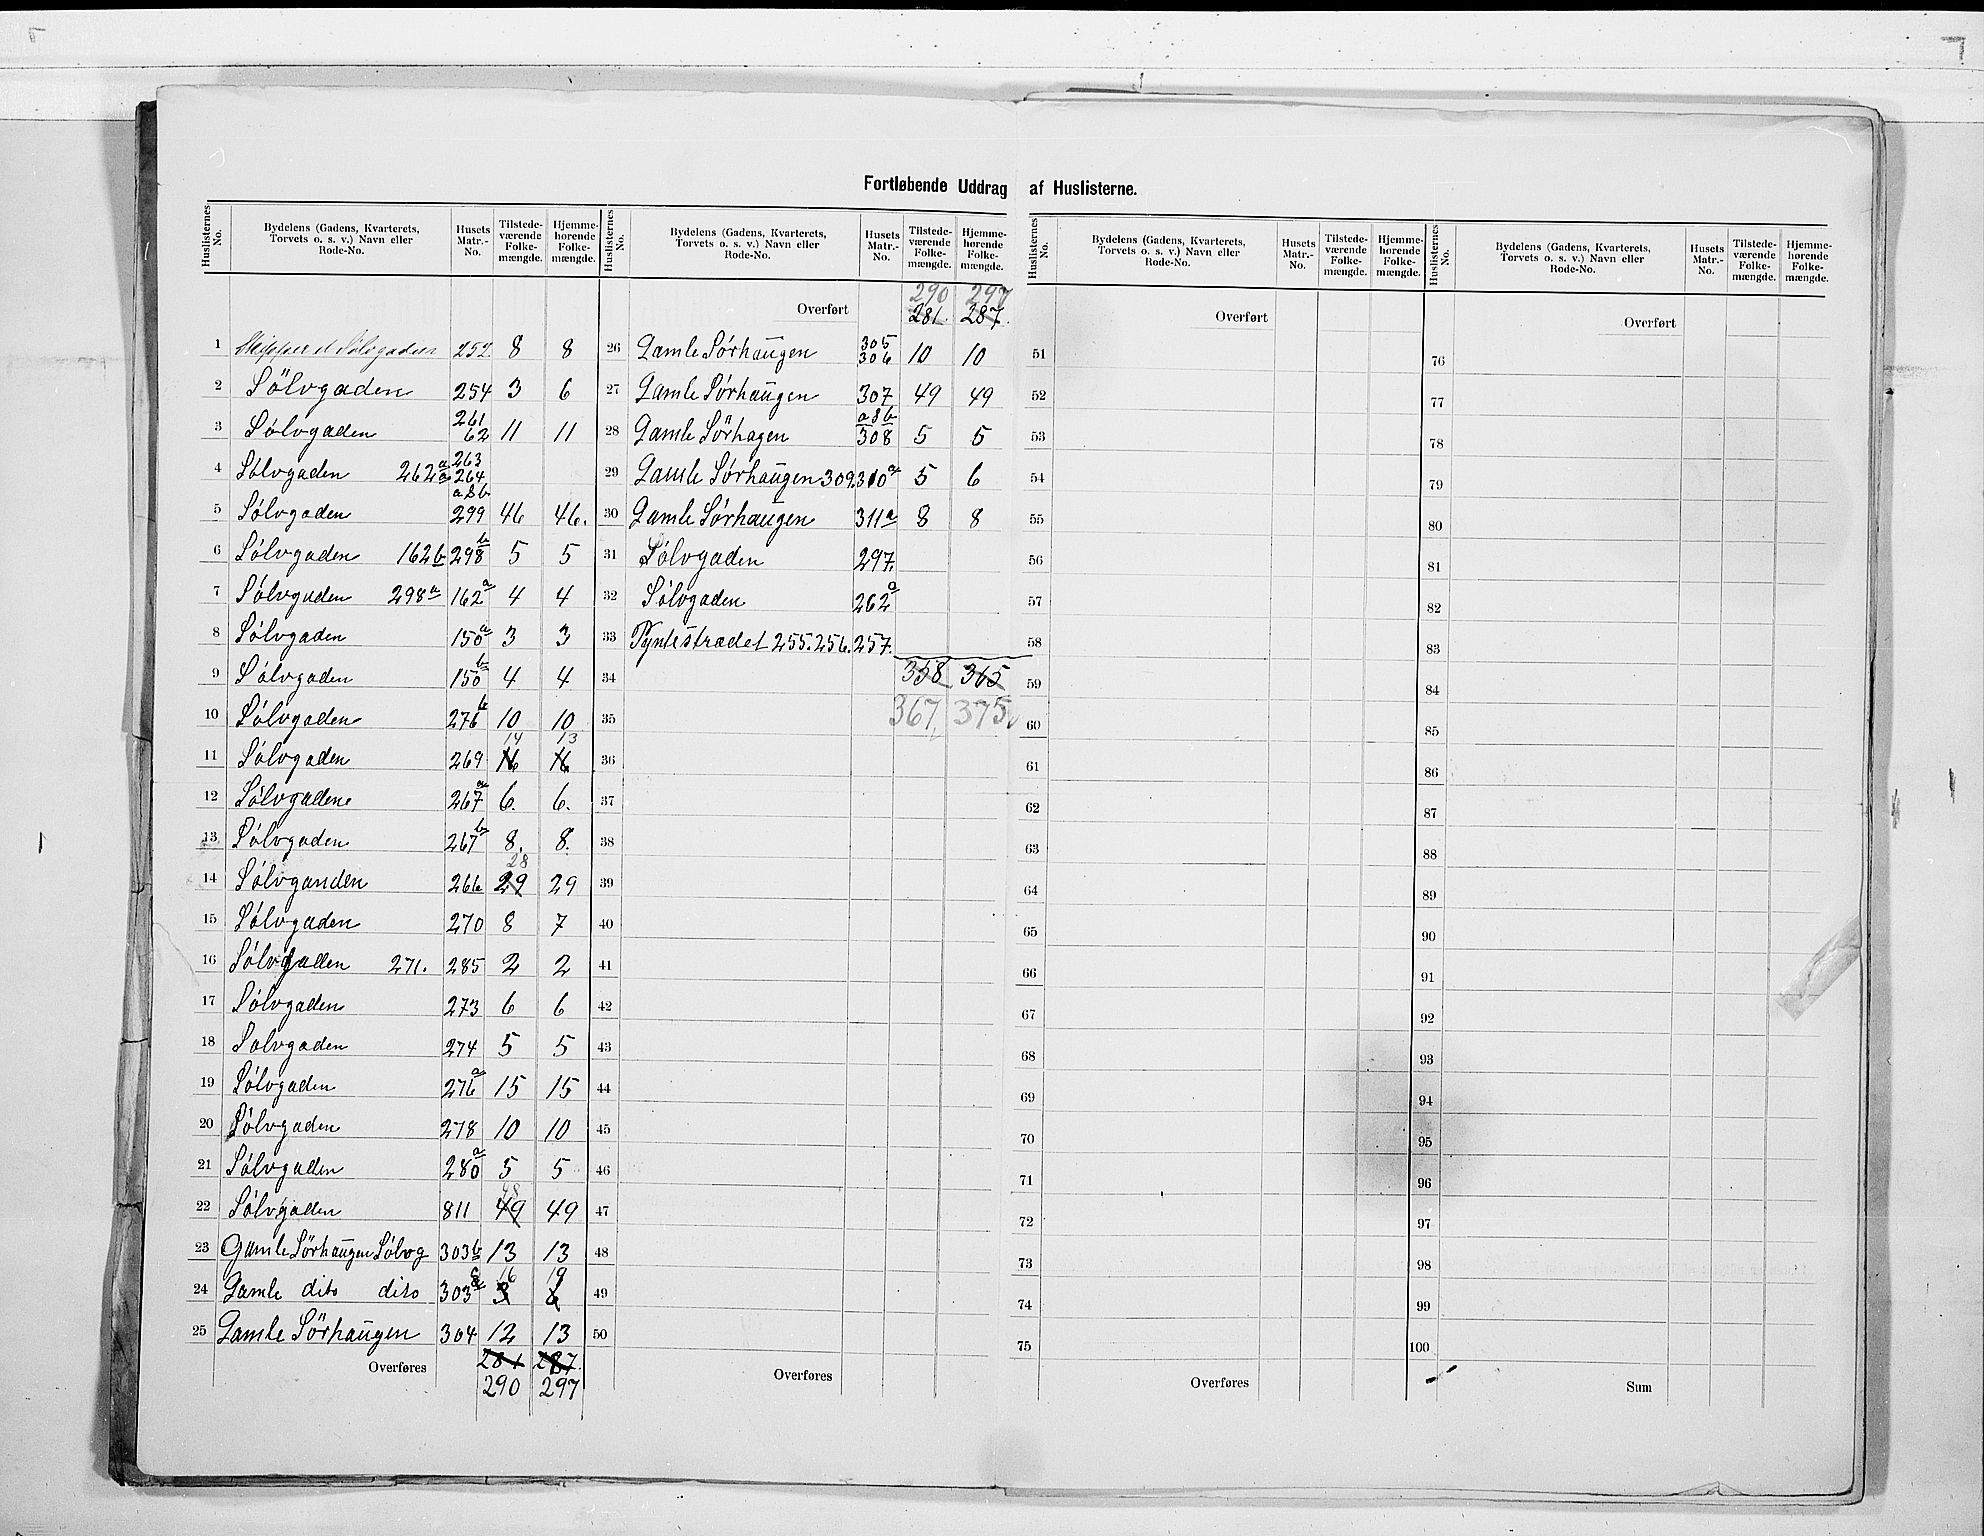 Fortløbende Uddrag af Huslisterne.
Huslisternes No. Bydelens (Gadens, Kvarterets, Torvets o. s. v.) Navn eller Rode-No. Husets Matr.-No. Tilstede-værende Folke-mængde. Hjemme-hørende Folke-mængde.
1 Sölvgaden 252. 8 8
2 Sölvgaden 254 3 6
3 Sölvgaden 261 62 11 11
4 Sölvgaden 262a 263 264 a&b
5 Sölvgaden 299 46 46.
6 Sölvgaden 162b 298b 5 5
7 Sölvgaden 298a 162a 4 4
8 Sölvgaden 150a 3 3
9 Sölvgaden 150b 4 4
10 Sölvgaden 276b 10 10
11 Sölvgaden 269 14 13
12 Sölvgadene 267a 6. 6.
13 Sölvgaden 267b 8. 8.
14 Sölvganden 266 29 28 29
15 Sölvgaden 270 8 7
16 Sölvgaden 271. 285 2 2
17 Sölvgaden 273 6 6
18 Solvgaden 274 5 5
19 Sölvgaden 276a 15 15
20 Sölvgaden 278 10 10
21 Sölvgaden 280a 5 5
22 Sölvgaden 811 49 48 49
23 Gamle Sörhaugen Sölvg 303b 13 13
24 Gamle dito dito 303a 3 16 6 19
25 Gamle Sörhaugen 304 12 13
Overføres 281 287.
290 297
Huslisternes No. Bydelens (Gadens, Kvarterets, Torvets o. s. v.) Navn eller Rode-No. Husets Matr.-No. Tilstede-værende Folke-mængde. Hjemme-hørende Folke-mængde.
290 297
Overført 281. 287.
26 Gamle Sörhaugen 305 306 10 10
27 Gamle Sörhaugen 307 49 49
28 Gamle Sörhagen a&b 308 5 5
29 Gamle Sörhaugen 309. 310a 5 6
30 Gamle Sörhaugen 311a 8 8
31 Sölvgaden 297.
32 Sölvgaden 262a
33 Pyntestrædet 255. 256. 257.
34 358 365
35 367, 375
36
37
38
39
40
41
42
43
44
45
46
47
48
49
50
Overføres
Huslisternes No. Bydelens (Gadens, Kvarterets, Torvets o. s. v.) Navn eller Rode-No. Husets Matr.-No. Tilstede-værende Folke-mængde. Hjemme-hørende Folke-mængde.
Overført
51
52
53
54
55
56
57
58
59
60
61
62
63
64
65
66
67
68
69
70
71
72
73
74
75
Overføres
Huslisternes No. Bydelens (Gadens, Kvarterets, Torvets o. s. v.) Navn eller Rode-No. Husets Matr.-No. Tilstede-værende Folke-mængde. Hjemme-hørende Folke-mængde.
Overført
76
77
78
79
80
81
82
83
84
85
86
87
88
89
90
91
92
93
94
95
96
97
98
99
100
Sum